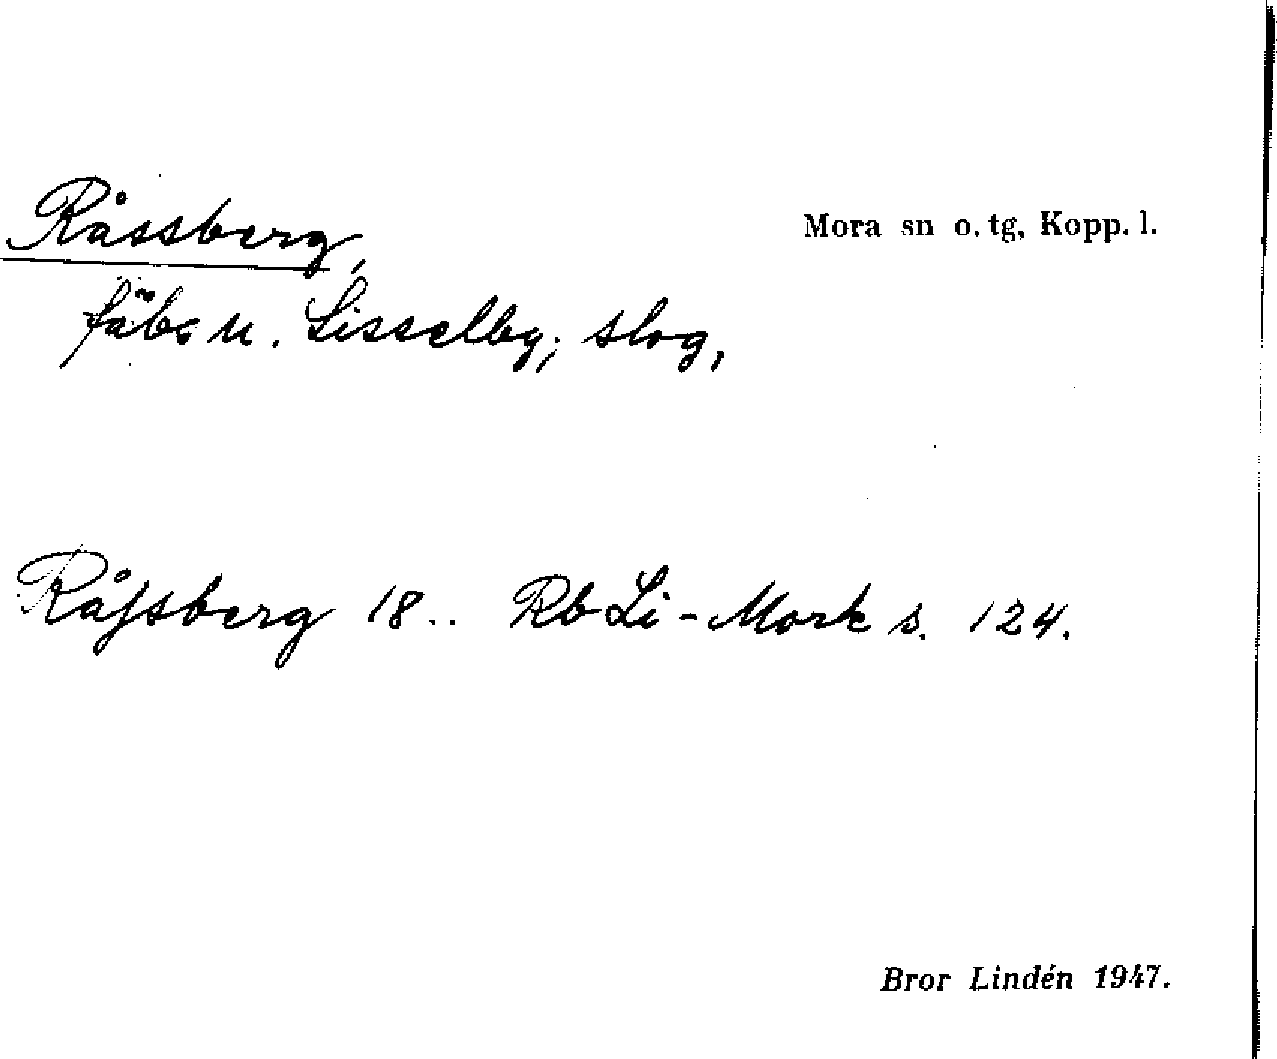 Råssberg,
Mora sn o. tg, Kopp. l.
fäbs u. Lisselby; slog,
Råſsberg 18.. Rb Li-Mork s. 124.
Bror Lindén 1947.